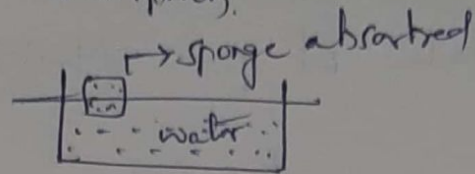 sponge absorbed
water